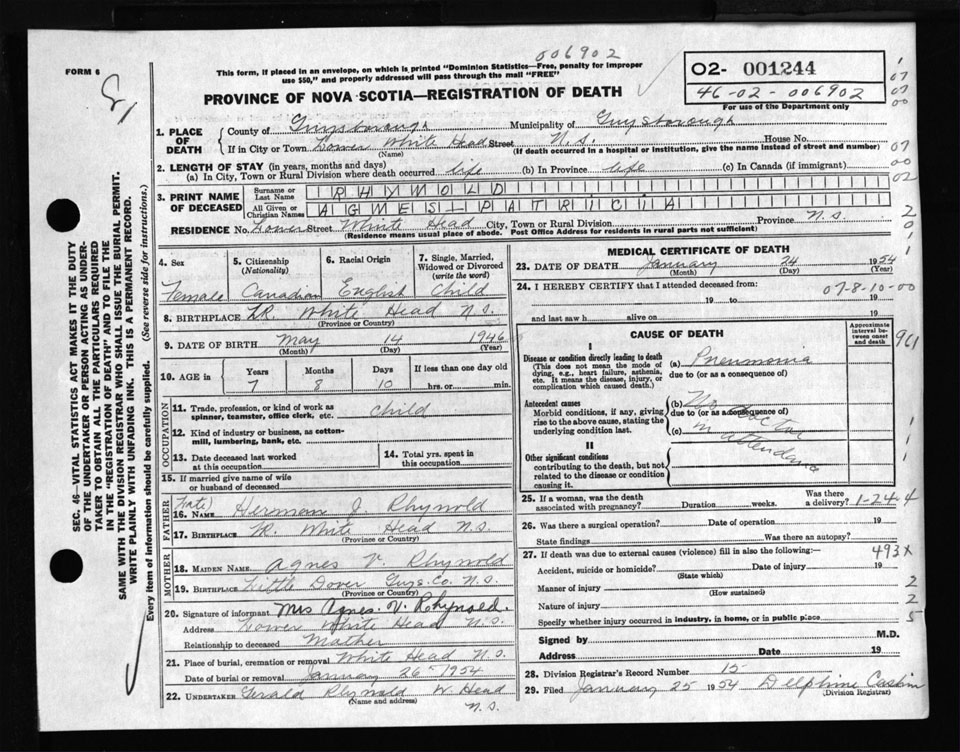 006902
FORM 6
This form, if placed in an envelope, on which is printed "Dominion Statistics—Free, penalty for improper
use $50," and properly addressed will pass through the mail "FREE"
O2- 001244
46-02-006902
For use of the Department only
PROVINCE OF NOVA SCOTIA—REGISTRATION OF DEATH
1. PLACE OF DEATH
County of Guysborough Municipality of Guysborough
If in City or Town Lower White Head Street N.S. House No.
(Name) (If death occurred in a hospital or institution, give the name instead of street and number)
2. LENGTH OF STAY (in years, months and days)
(a) In City, Town or Rural Division where death occurred life (b) In Province life (c) In Canada (if immigrant)
3. PRINT NAME OF DECEASED
Surname or Last Name RHYNOLD
All Given or Christian Names AGNES PATRICIA
RESIDENCE No. Lower Street White Head City, Town or Rural Division Province N.S.
(Residence means usual place of abode. Post Office Address for residents in rural parts not sufficient)
4. Sex
Female
5. Citizenship (Nationality)
Canadian
6. Racial Origin
English
7. Single, Married, Widowed or Divorced (write the word)
Child
8. BIRTHPLACE LR. White Head N.S.
(Province or Country)
9. DATE OF BIRTH May 14 1946
(Month) (Day) (Year)
10. AGE in Years Months Days If less than one day old
7 8 10 hrs. or min.
OCCUPATION
11. Trade, profession, or kind of work as spinner, teamster, office clerk, etc. child
12. Kind of industry or business, as cotton-mill, lumbering, bank, etc.
13. Date deceased last worked at this occupation
14. Total yrs. spent in this occupation
15. If married give name of wife or husband of deceased
FATHER
(Late)
16. NAME Herman J. Rhynold
17. BIRTHPLACE LR. White Head N.S.
(Province or Country)
MOTHER
18. MAIDEN NAME Agnes V. Rhynold
19. BIRTHPLACE Little Dover Guys. Co. N.S.
(Province or Country)
20. Signature of informant Mrs Agnes. V. Rhynold.
Address Lower White Head N.S.
Relationship to deceased Mother
21. Place of burial, cremation or removal White Head N.S.
Date of burial or removal January 26 1954
22. UNDERTAKER Gerald Rhynold W. Head
(Name and address) N.S.
MEDICAL CERTIFICATE OF DEATH
23. DATE OF DEATH January 24 1954
(Month) (Day) (Year)
24. I HEREBY CERTIFY that I attended deceased from:
07-8-10-00
19 to 19
and last saw h alive on 19
CAUSE OF DEATH
Approximate interval between onset and death
I
Disease or condition directly leading to death
(This does not mean the mode of dying, e.g., heart failure, asthenia, etc. It means the disease, injury, or complication which caused death.)
(a) Pneumonia
due to (or as a consequence of)
Antecedent causes
Morbid conditions, if any, giving rise to the above cause, stating the underlying condition last.
(b) No
due to (or as a consequence of)
Doctor
(c) in
attendance
II
Other significant conditions
contributing to the death, but not related to the disease or condition causing it.
25. If a woman, was the death associated with pregnancy? Duration weeks. Was there a delivery? 1-24-4
26. Was there a surgical operation? Date of operation 19
State findings Was there an autopsy?
493X
27. If death was due to external causes (violence) fill in also the following:—
Accident, suicide or homicide? Date of injury 19
(State which)
Manner of injury
(How sustained)
Nature of injury
Specify whether injury occurred in industry, in home, or in public place
Signed by M.D.
Address Date 19
28. Division Registrar's Record Number 15
29. Filed January 25 1954 Delphine Caskin
(Division Registrar)
SEC. 46—VITAL STATISTICS ACT MAKES IT THE DUTY
OF THE UNDERTAKER OR PERSON ACTING AS UNDER-
TAKER TO OBTAIN ALL THE PARTICULARS REQUIRED
IN THE "REGISTRATION OF DEATH" AND TO FILE THE
SAME WITH THE DIVISION REGISTRAR WHO SHALL ISSUE THE BURIAL PERMIT.
WRITE PLAINLY WITH UNFADING INK. THIS IS A PERMANENT RECORD.
Every item of information should be carefully supplied. (See reverse side for instructions.)